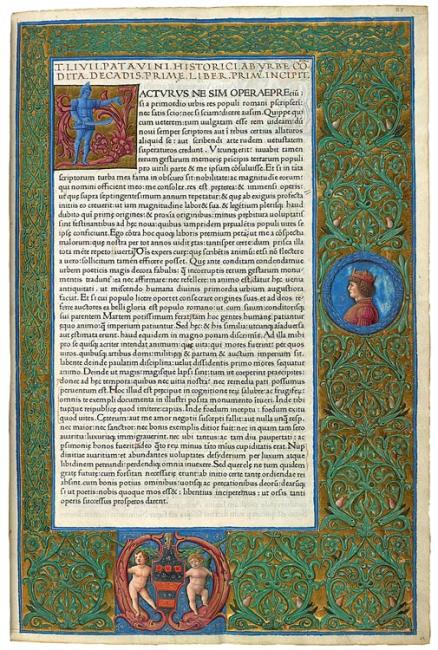 T. LIVII. PATAVINI. HISTORICI. AB VRBE CO
DITA. DECADIS. PRIME. LIBER. PRIMVS. INCIPIT.
FACTVRVS NE SIM OPERAEPRE
si a primordio urbis res populi romani
nec satis scio: nec si sciam dicere ausim. Quippe qui
cum ueterem: tum uulgatam esse rem uideam: dũ
noui semper scriptores aut i rebus certius allaturos
aliquid se: aut scribendi arte rudem uetustatem
superaturos credunt. Vtcunq erit: iuuabit tamen
rerum gestarum memorie pricipis terrarum populi
pro uirili parte & me ipsum cõsuluisse. Et si in tãta
scriptorum turba mea fama in obscuro sit: nobilitate: ac magnitudine eorum:
qui nomini officient meo: me consoler. res est preterea: & immensi operis:
ut que supra septingentesimum annum repetatur: & que ab exiguis profecta
initiis eo creuerit: ut iam magnitudine laboret sua. & legentium plerisq: haud
dubito qui prime origines: & proxia originibus: minus prebitura uoluptatis
sint festinantibus ad hec noua: quibus iampridem preualetis populi uires se
ipse conficiunt. Ego cõtra hoc quoq laboris premium petã: ut me a cõspectu
malorum: que nostra per tot annos uidit etas: tantisper certe: dum prisca illa
tota mẽte repeto: auertã. Ois expers cure: que scribẽtis animũ: etsi nõ flectere
a uero: sollicitum tamen efficere posset. Que ante conditam condendamue
urbem poeticis magis decora fabulis: q̃ incorruptis rerum gestarum monu-
mentis tradunt: ea nec affirmare: nec refellere: in animo est. datur hec uenia
antiquitati: ut miscendo humana diuinis primordia urbium augustiora
faciat. Et si cui populo licere oportet consecrare origines suas: et ad deos re-
ferre auctores: ea belli gloria est populo romano: ut cum suum: conditorisq;
sui parentem Martem potissimum ferat: tam hoc gentes humane patiantur
equo animo: q̃ imperium patiuntur. Sed hec: & his similia: utcunq; aĩaduersa
aut estimata erunt: haud equidem in magno ponam discrimine. Ad illa mihi
pro se quisq; acriter intendat animum: que uita: qui mores fuerint: per quos
uiros: quibusq; artibus domi: militieq; & partum & auctum imperium sit.
labente deinde paulatim disciplina: uelut dissidentis primo mores sequatur
animo. Deinde ut magis: magisque lapsi sint: tum ire coeperint precipites:
donec ad hec tempora: quibus nec uitia nostra: nec remedia pati possumus
peruentum est. Hoc illud est precipue in cognitione rerum salubre: ac frugifer
omnis te exempli documenta in illustri posita monumento intueri. Inde tibi
tueque reipublice quod imitere: capias. Inde foedum inceptu: foedum exitu
quod uites. Ceterum: aut me amor negotii suscepti fallit: aut nulla unq̃ resp.
nec maior: nec sanctior: nec bonis exemplis ditior fuit: nec in quam tam sero
auaritia: luxuriaq; immigrauerint. nec ubi tantus: ac tam diu paupertati: ac
parsimonie honos fuerit: adeo quãto rerum minus: tãto minus cupiditatis erat. Nup
diuitiae auaritiam: et abundantes uoluptates desiderium per luxum atque
libidinem pereundi: perdendiq; omnia inuexere. Sed querele ne tum quidem
grate future: cum forsitan necessarie erunt: ab initio certe tante ordiendae rei
absint. cum bonis potius ominibus: uotisq; ac precationibus deorum: dearumq;
si ut poetis: nobis quoque mos esset: libentius inciperemus: ut orsis tanti
operis successus prosperos darent.